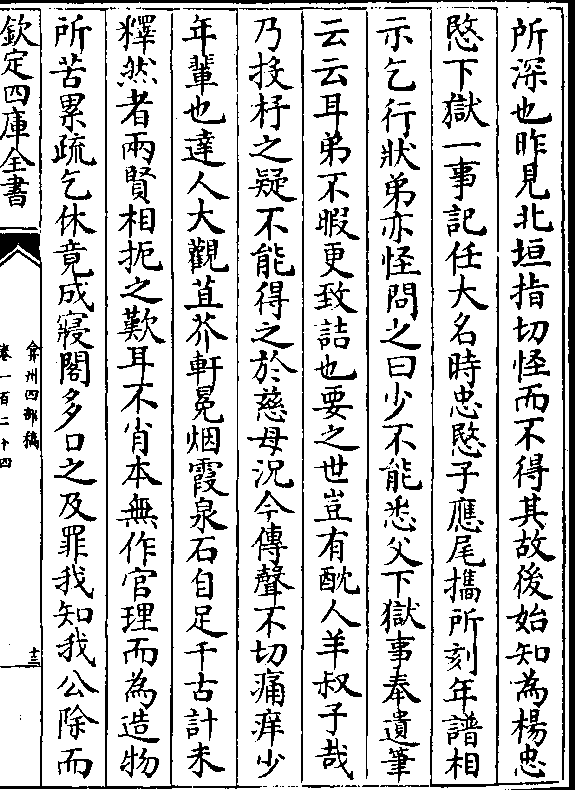 所深也昨見北垣指切怪而不得其故後始知為楊忠
愍下獄一事記任大名時忠愍子應尾攜所刻年譜相
示乞行狀弟亦怪問之曰少不能悉父下獄事奉遺筆
云云耳弟不暇更致詰也要之世豈有酖人羊叔子哉
乃投杼之疑不能得之於慈母況今傳聲不切痛痒少
年輩也達人大觀苴芥軒冕烟霞泉石自足千古計未
釋然者兩賢相扼之歎耳不肖本無作官理而為造物
所苦累疏乞休竟成寢閣多口之及罪我知我公除而
欽定四庫全書
弇州四部稿
卷一百二十四
十三